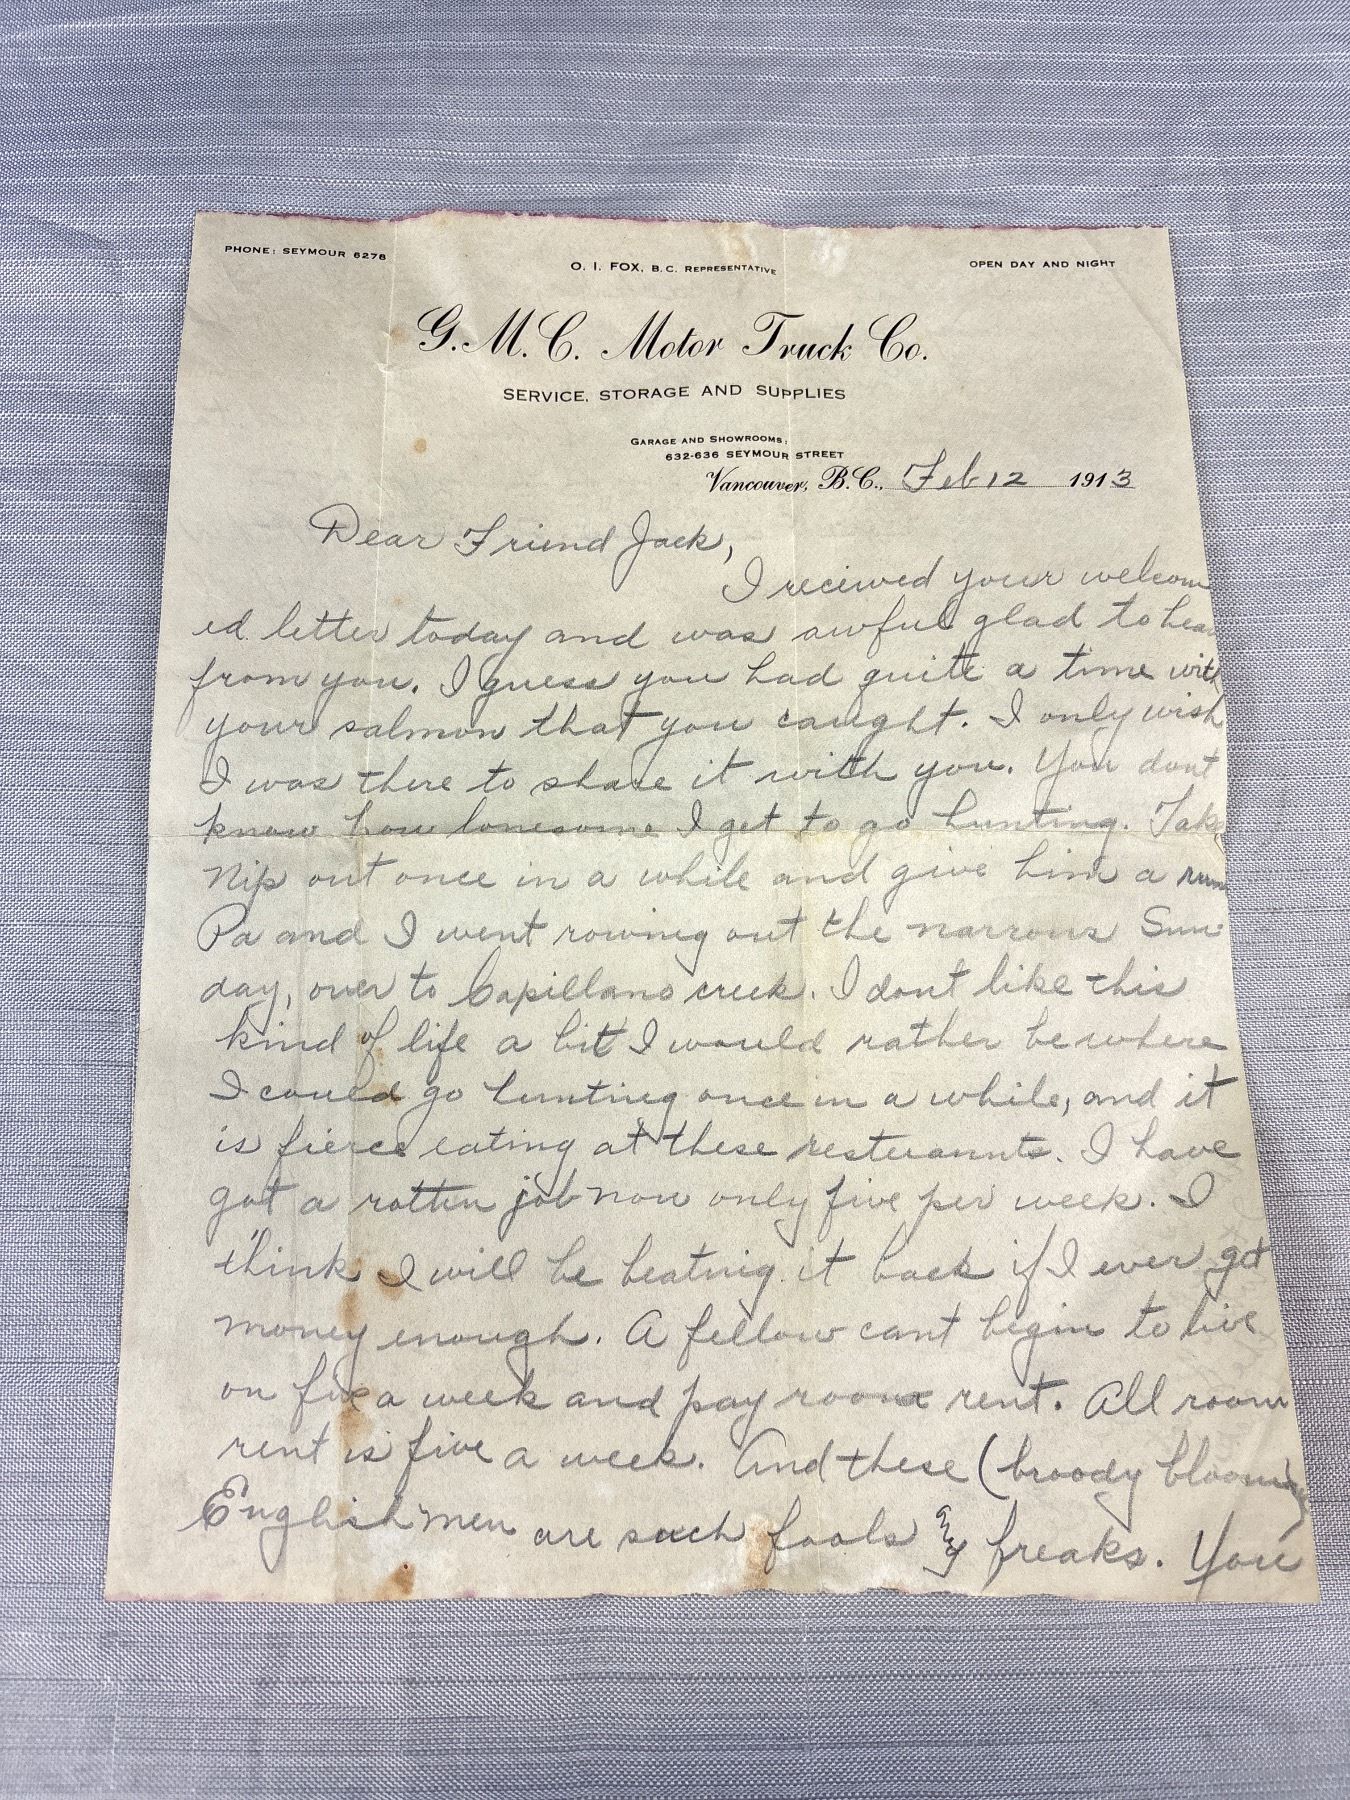 PHONE: SEYMOUR 6276
O. I. FOX, B.C. REPRESENTATIVE
OPEN DAY AND NIGHT
G.M.C. Motor Truck Co.
SERVICE, STORAGE AND SUPPLIES
GARAGE AND SHOWROOMS:
632-636 SEYMOUR STREET
Vancouver, B.C., Feb 12 1913
Dear Friend Jack,
I recieved your welcom
ed letter today and was awful glad to hear
from you. I guess you had quite a time with
your salmon that you caught. I only wish
I was there to share it with you. You dont
know how lonesome I get to go hunting. Take
Nip out once in a while and give him a run
Pa and I went rowing out the narrows Sun-
day, over to Capillano creek. I dont like this
kind of life a bit I would rather be where
I could go hunting once in a while, and it
is fierce eating at these resteraunts. I have
got a rotten job now only five per week. I
think I will be beating it back if I ever get
money enough. A fellow cant begin to live
on five a week and pay room rent. All room
rent is five a week. And these (broody blooming)
Englishmen are such fools and freaks. You